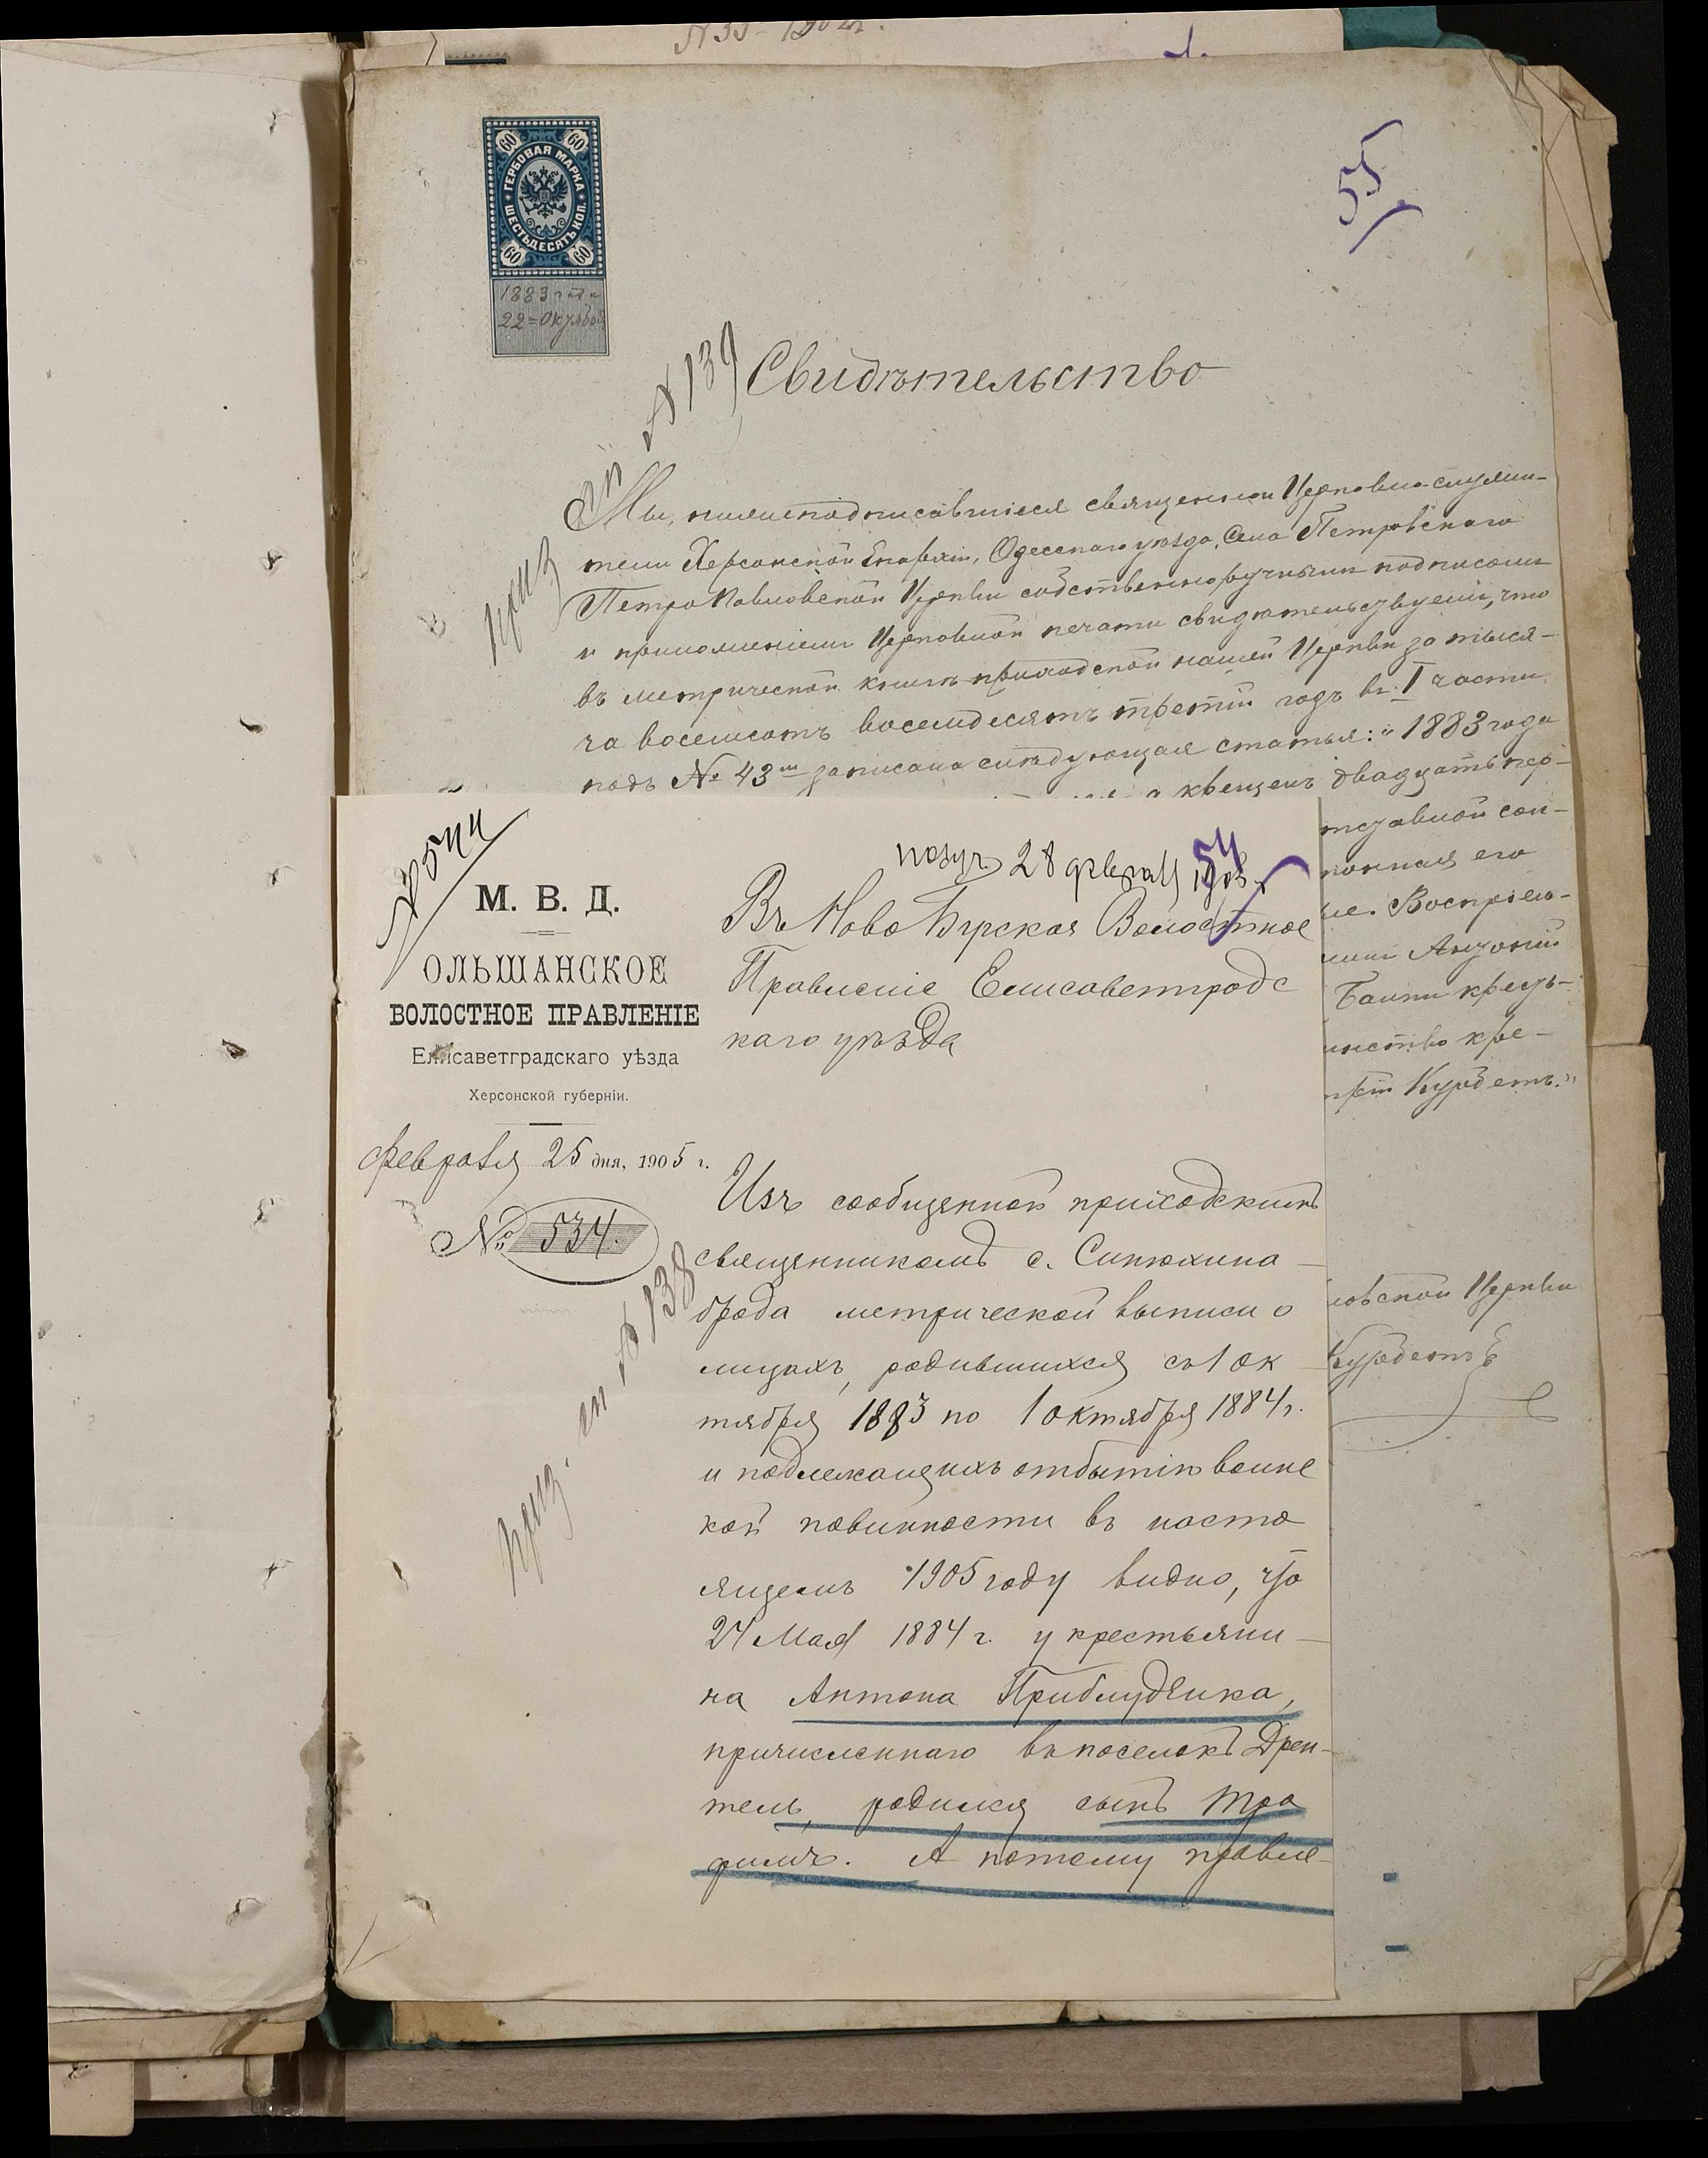 55
60 60
ГЕРБОВАЯ МАРКА
ШЕСТЬДЕСЯТЪ КОП.
60 60
1883 года
22 = Октября
№ 139
Свидѣтельство
Мы, нижеподписавшіеся священно и Церковно-служи-
тели Херсонской Епархіи, Одесскаго уѣзда, Села Петровскаго
Петро Павловской Церкви собственноручными подписами
и приложеніемъ Церковной печати свидѣтельствуемъ, что
въ метрической книгѣ приходской нашей Церкви за тыся-
ча восемьсотъ восемдесятъ третій годъ въ I части
подъ № 43мъ записана слѣдующая статья: „1883 года
крещенъ двадцать пер-
ставной сол-
конная его
Воспріем-
Антоній
кресть-
кре-
Курбетъ."
овской Церкви
Курбетъ
№ 544
получ 28 февраля 1905 г.
54
М. В. Д.
ОЛЬШАНСКОЕ
ВОЛОСТНОЕ ПРАВЛЕНІЕ
Елисаветградскаго уѣзда
Херсонской губерніи.
Февраля 25 дня, 1905 г.
№ 534.
Въ Ново Бугское Волостное
Правленіе Елисаветградс
каго уѣзда
Изъ сообщенной приходскимъ
священникомъ с. Синюхина
брода метрической выписи о
лицахъ, родившихся съ 1 ок
тября 1883 по 1 октября 1884 г.
и подлежащихъ отбытію воинс
кой повинности въ насто
ящемъ 1905 году видно, что
24 Мая 1884 г. у крестьяни-
на Антона Приблудченка,
причисленнаго въ поселокъ Дрен-
тель, родился сынъ Тро
фимъ. А потому правле-
приз. сп № 138